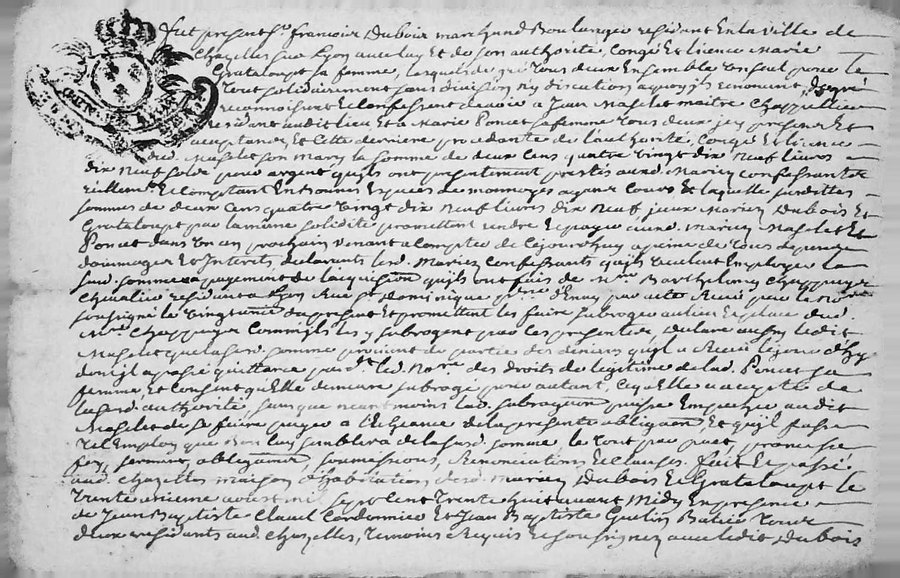 fut présent Sr francois Dubois marchand Boulanger résidant En la ville de
Chazelles sur Lyon avec luy Et de son authorité, Congé Et licence Marie
Grataloup sa femme, lesquels de gré tous deux Ensemble Un seul pour le
tout solidairement sans division ny discution a quoy ils renoncent, de gré
reconnoissent Et confessent devoir a Jean Maselet maitre Chappellier
résidant audit lieu Et a Marie Poncet sa femme tous deux icy présens Et
acceptans, Et cette derniere procedante de l'authorité, Congé Et licence
dud. Maselet son mary la somme de deux Cens quatre vingt dix Neuf livres
dix Neuf sols pour argent qu'ils ont présentement prestés auxd. Mariez confessants
réellement Et Comptant En bonnes Espèces de monnoyes ayant Cours Et laquelle susdittes
sommes de deux Cens quatre vingt dix Neuf livres dix Neuf, iceux Mariez Dubois Et
Grataloup par la meme solidité promettent rendre Et payer auxd. Mariez Maselet Et
Poncet dans Un an prochain venant a Compter de Cejourdhuy a peine de tous depens
dommages Et Interets declarants lesd. Mariez Confessants qu'ils veulent Employer la
susd. somme au payement de l'acquisition qu'ils ont fait de Mre Barthelemy Chappuys
Chevalier résidant a Lyon Rue St Dominique d'Enay par acte Receu par le Nore
soussigné le vingt du présent Et promettent les faire subroger au lieu Et place dud.
Mre Chappuys Comme ils les y subrogent par ces présentes, declare aussy ledit
Maselet que lasd. somme provient de partie des deniers qu'il a Receu
dont il a passé quittance pard. led. Nore des droits de legitime de lad. Poncet sa
femme, Et Consent qu'elle demeure subrogé pour autant. Ce qu'elle a accepté de
lasusd. authorité, sans que neantmoins lad. subrogation puisse Empecher audit
Maselet de se faire payer a l'Echeance de la présente obligaon Et qu'il fasse
tel Employ que bon luy semblera de lasusd. somme le tout par pact, promesse
foy, serment, obligaons, soumissions, Renonciations Et clauses. fait Et passé
aud. Chazelles maison d'habitation desd. mariez Dubois Et Grataloup le
trente unieme aoust mil sept cent trente huit avant Midy En présence
de Jean Baptiste Claud Cordonnier Et Jean Baptiste tous
deux résidants aud. Chazelles, temoins Requis Et soussignez avec ledit Dubois